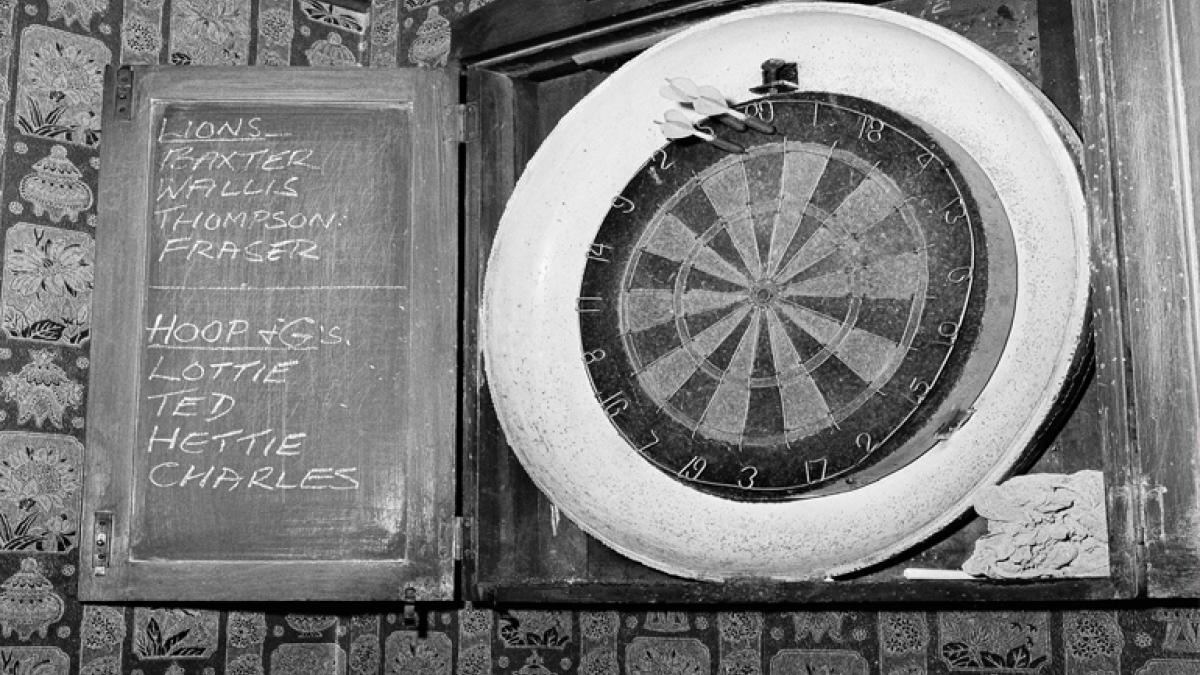 LIONS
BAXTER
WALLIS
THOMPSON.
FRASER
HOOP &G's.
LOTTIE
TED
HETTIE
CHARLES
20 1 18 4 13 6 10 15 2 17 3 19 7 16 8 11 14 9 12